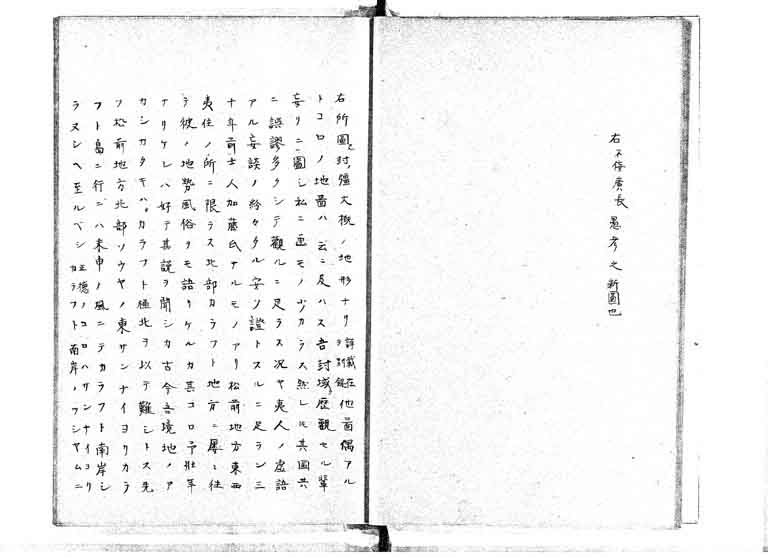 右不侫廣長愚考之新圖也
右所圖封彊大概ノ地形ナリ詳載在封域他圖偶アル
トコロノ地圖ハ云ニ及ハス吾封域歴觀セル輩
妄リニ圖シ私ニ画モノ少カラス然レ𪜈其圖共
ニ誤謬多クシテ觀ルニ足ラス况ヤ夷人ノ虚語
アル妄談ノ紛々タル安ソ證トスルニ足ラン三
十年前士人加藤氏ナルモノアリ松前地方東西
夷住ノ所ニ限ラス北部カラフト地方ニ屢々往
テ彼ノ地勢風俗ヲモ語リケルカ其コロ予壯年
ナリケレハ好テ其説ヲ聞シカ古今吾境地ノア
カシカタキハカラフト極北ヲ以テ難シトス先
ノ松前地方北部ソウヤノ東サンナイヨリカラ
フト島ニ行ニハ未申ノ風ニテカラフト南岸シ
ラヌシヘ至ルベシ正德ノコロハサンナイヨリカラフト南岸ノフシヤムニ